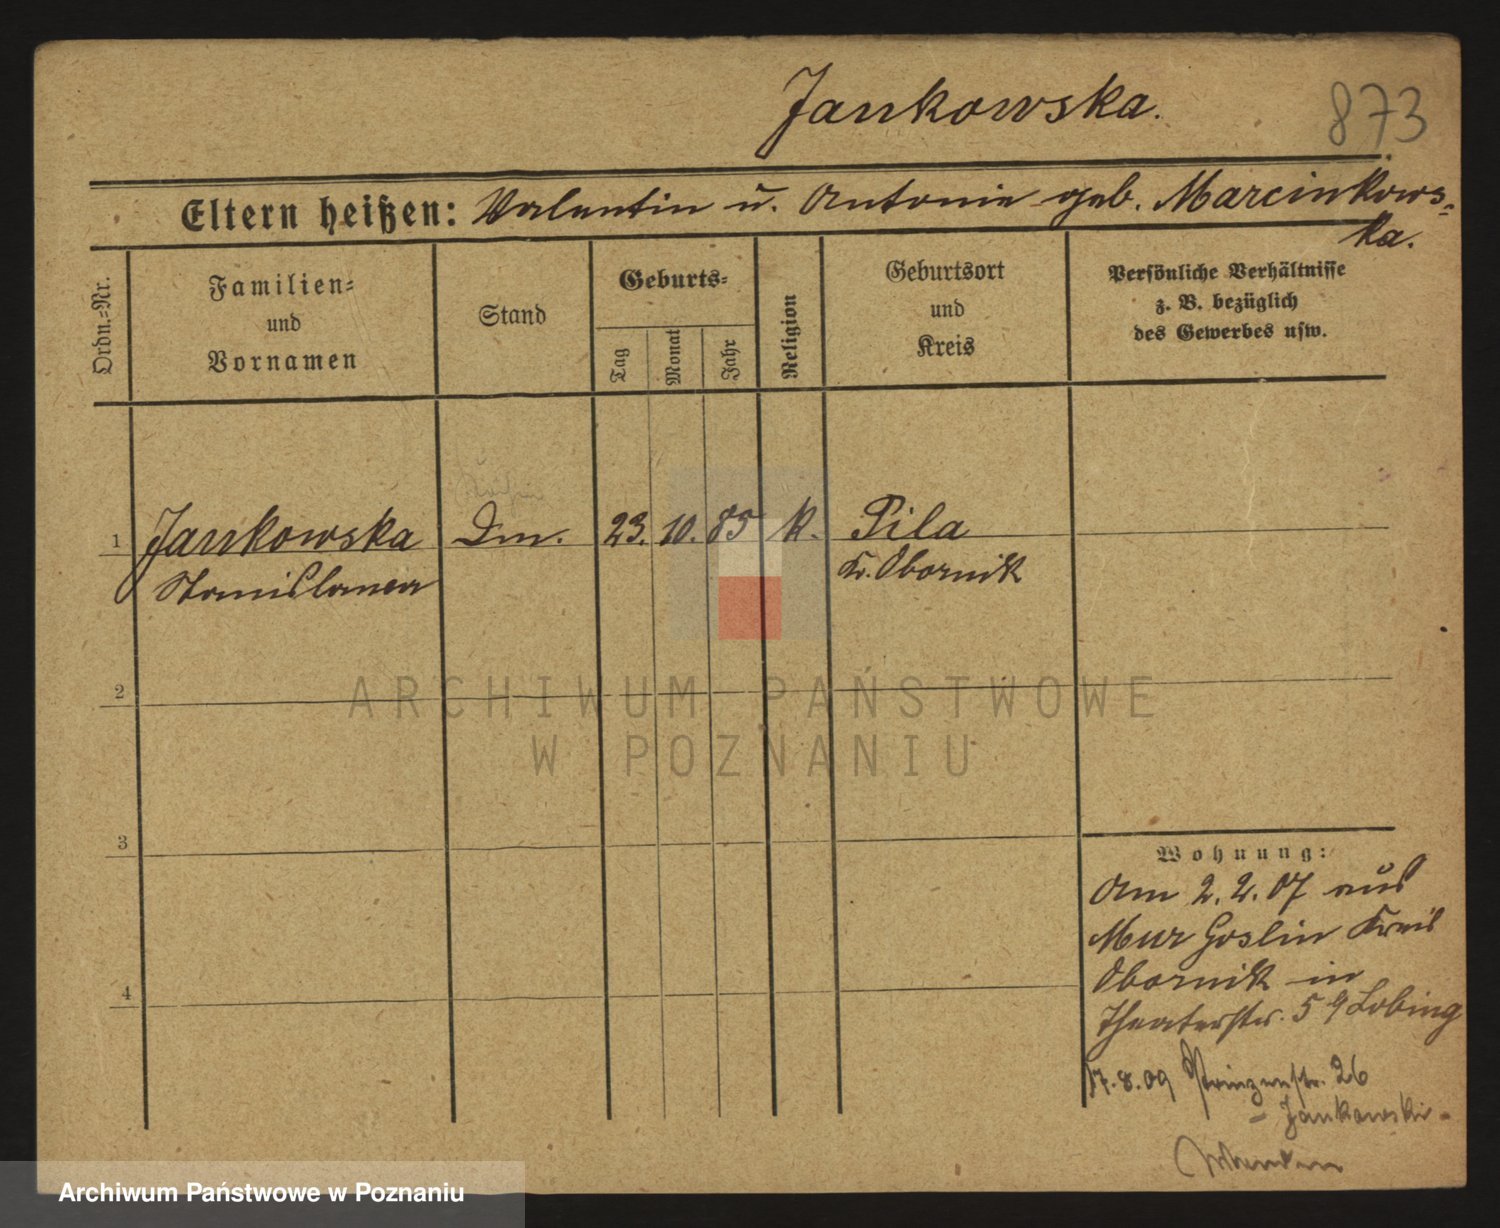 Jankowska.
873
Eltern heißen: Valentin u. Antonie geb. Marcinkows=
ka.
Ordn.=Nr.
Familien=
und
Vornamen
Stand
Geburts=
Tag
Monat
Jahr
Religion
Geburtsort
und
Kreis
Persönliche Verhältnisse
z. B. bezüglich
des Gewerbes usw.
1
Jankowska
Stanislawa
Dm.
23. 10. 85
k.
Pila
Kr. Obornik
2
ARCHIWUM PAŃSTWOWE
W POZNANIU
3
4
Wohnung:
Am 2. 2. 07 aus
Mur Goslin Kreis
Obornik in
Theaterstr. 5 Lobing
17.8.09 Prinzenstr. 26
- Jankowski -
Archiwum Państwowe w Poznaniu